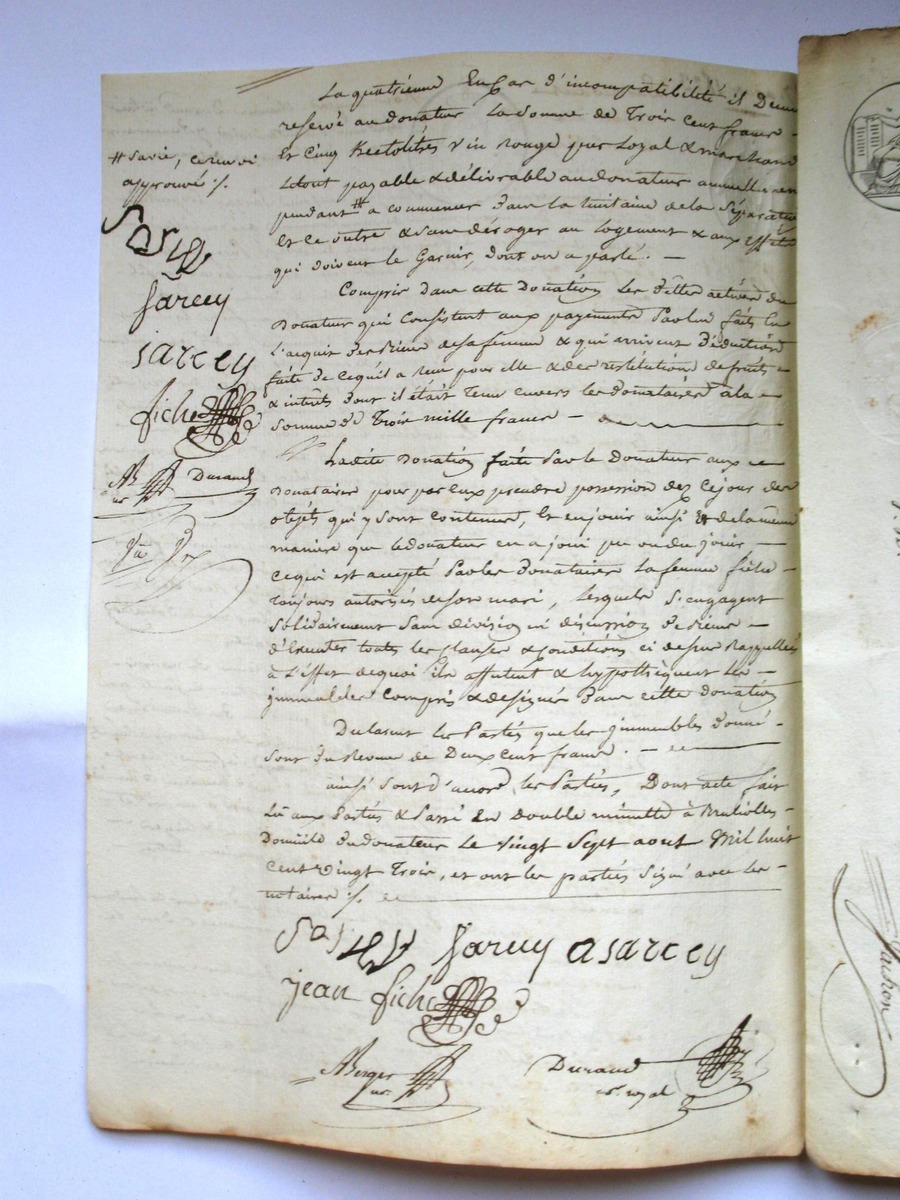 La quatrième En Cas d'incompatibilité il Deme
reservé au donateur La Somme de Trois Cent francs
Et Cinq hectolitres Vin rouge pur Loyal & marchand
Ledout payable & délivrable au donateur annuellemen
pendant # a commencer dans la huitaine de la Séparation
Et ce outre & sans déroger au Logement & aux effets
qui doivent le Garnir, dont on a parlé. —
# Sa vie, ce renvoi
approuvé ./.
Sarcey
Sarcey
sarcey
fiche
AB
nre
Durand
Compris Dans cette Donation Les Dettes actives du
Donateur qui Consistent aux payements Par lui faits En
L'acquit des Siens de sa femme & qui arrivent Déduction
faite De Ce qu'il a reçu pour elle & des restitutions de fruits
& intérêts dont il était Tenu envers les donataires à la
Somme de Trois mille francs —
Ladite Donation faite Par le Donateur aux
Donataires pour par Eux prendre possession dez Ce jour des
objets qui y sont Contenus, Et en jouir ainsi & de la même
maniere que le donateur en a joui pu ou du jouir,
Ce qui est accepté Par les Donataires La femme fiche
Toujours autorisée de son mari, Lesquels S'engagent
Solidairement Sans division ni discussion De Siens
d'Executer toutes les Clauses & Conditions ci dessus Rappellées
à L'Effet de quoi ils affectent & hypothèquent Les
immeubles Compris & designés Dans Cette donation
Declarent les Parties que les immeubles Donné
Sont Du Revenu de Deux Cent francs. —
ainsi Sont d'accord les Parties, Dont acte fait
Lû aux Parties & Passé En Double minutte à Brulioles
Domicile Du donateur Le Vingt Sept août Mil huit
Cent Vingt Trois, et ont les parties Signé avec Les
notaires ./.
Sarcey Sarcey a sarcey
jean fiche
ABerger
nre
Durand
nre. royal